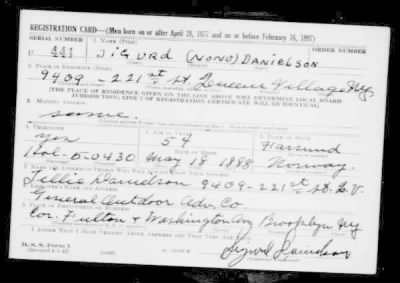 REGISTRATION CARD—(Men born on or after April 28, 1877 and on or before February 16, 1897)
SERIAL NUMBER 1. NAME (Print) ORDER NUMBER
U 441 Sigurd (NONO) DANIELSON
2. PLACE OF RESIDENCE (Print)
9409 - 221st St. Queens Village NY.
[THE PLACE OF RESIDENCE GIVEN ON THE LINE ABOVE WILL DETERMINE LOCAL BOARD
JURISDICTION; LINE 2 OF REGISTRATION CERTIFICATE WILL BE IDENTICAL]
3. MAILING ADDRESS
same.
4. TELEPHONE 5. AGE IN YEARS 6. PLACE OF BIRTH
yes 54 Farsund
Hol-5-0430 May 18 1888 Norway.
7. NAME AND ADDRESS OF PERSON WHO WILL ALWAYS KNOW YOUR ADDRESS
Danielson 9409-221st St. Q.V.
8. EMPLOYER'S NAME AND ADDRESS
General Outdoor Adv. Co
9. PLACE OF EMPLOYMENT OR BUSINESS
Cor. Fulton & Washington Av Brooklyn NY
I AFFIRM THAT I HAVE VERIFIED ABOVE ANSWERS AND THAT THEY ARE TRUE.
D. S. S. Form 1
Sigurd Danielson